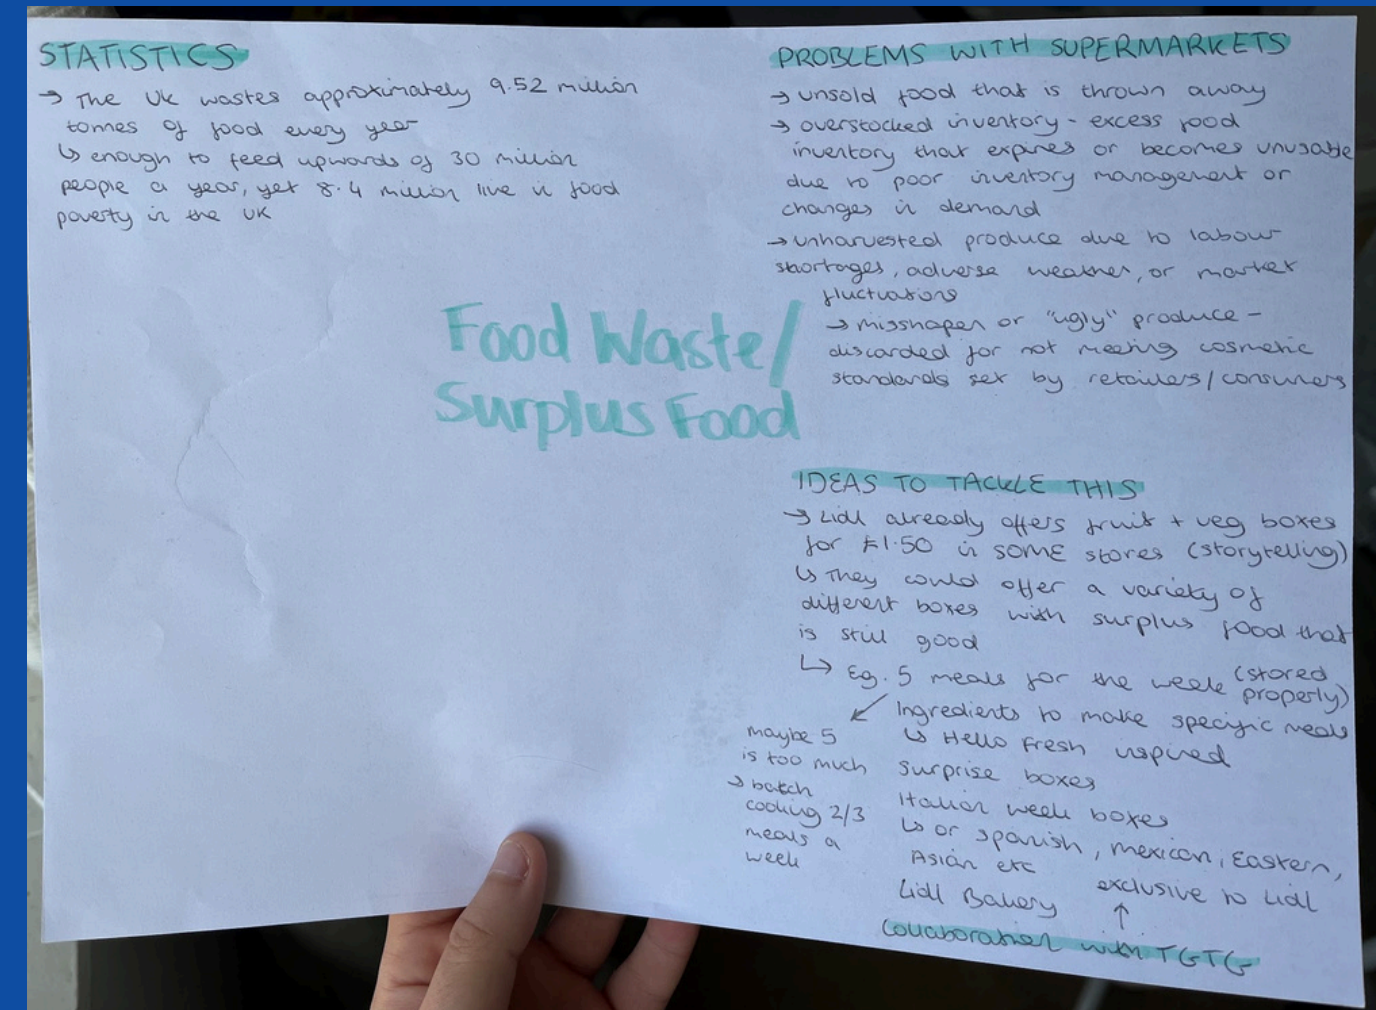 STATISTICS
→ The UK wastes approximately 9.52 million
tonnes of food every year
↳ enough to feed upwards of 30 million
people a year, yet 8.4 million live in food
poverty in the UK
Food Waste/
Surplus Food
PROBLEMS WITH SUPERMARKETS
→ unsold food that is thrown away
→ overstocked inventory - excess food
inventory that expires or becomes unusable
due to poor inventory management or
changes in demand
→ unharvested produce due to labour
shortages, adverse weather, or market
fluctuations
→ misshapen or "ugly" produce -
discarded for not meeting cosmetic
standards set by retailers/consumers
IDEAS TO TACKLE THIS
→ Lidl already offers fruit + veg boxes
for £1.50 in SOME stores (storytelling)
↳ They could offer a variety of
different boxes with surplus food that
is still good
↳ Eg. 5 meals for the week (stored
properly)
maybe 5
is too much
→ batch
cooking 2/3
meals a
week
Ingredients to make specific meals
↳ Hello Fresh inspired
Surprise boxes
Italian week boxes
↳ or Spanish, Mexican, Eastern,
Asian etc
Lidl Bakery
exclusive to Lidl
↑
Collaboration with TGTG